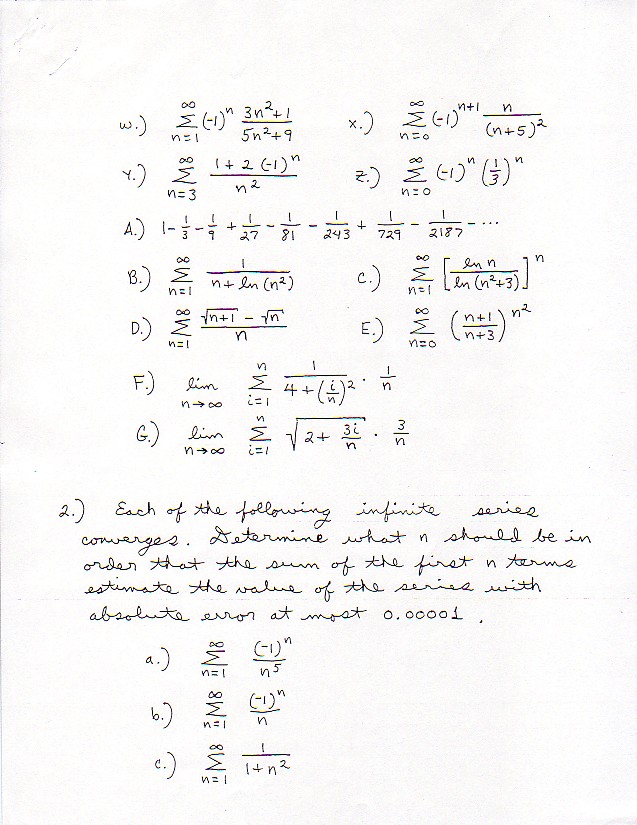 w.) ∑_{n=1}^{∞} (-1)^n (3n²+1)/(5n²+9) x.) ∑_{n=0}^{∞} (-1)^{n+1} n/(n+5)²
Y.) ∑_{n=3}^{∞} (1+2(-1)^n)/n² Z.) ∑_{n=0}^{∞} (-1)^n (1/3)^n
A.) 1 - 1/3 - 1/9 + 1/27 - 1/81 - 1/243 + 1/729 - 1/2187 - ⋯
B.) ∑_{n=1}^{∞} 1/(n + ln(n²)) C.) ∑_{n=1}^{∞} [ln n / ln(n²+3)]^n
D.) ∑_{n=1}^{∞} (√(n+1) - √n)/n E.) ∑_{n=0}^{∞} ((n+1)/(n+3))^{n²}
F.) lim_{n→∞} ∑_{i=1}^{n} 1/(4+(i/n)²) · 1/n
G.) lim_{n→∞} ∑_{i=1}^{n} √(2 + 3i/n) · 3/n
2.) Each of the following infinite series
converges. Determine what n should be in
order that the sum of the first n terms
estimate the value of the series with
absolute error at most 0.00001.
a.) ∑_{n=1}^{∞} (-1)^n/n⁵
b.) ∑_{n=1}^{∞} (-1)^n/n
c.) ∑_{n=1}^{∞} 1/(1+n²)